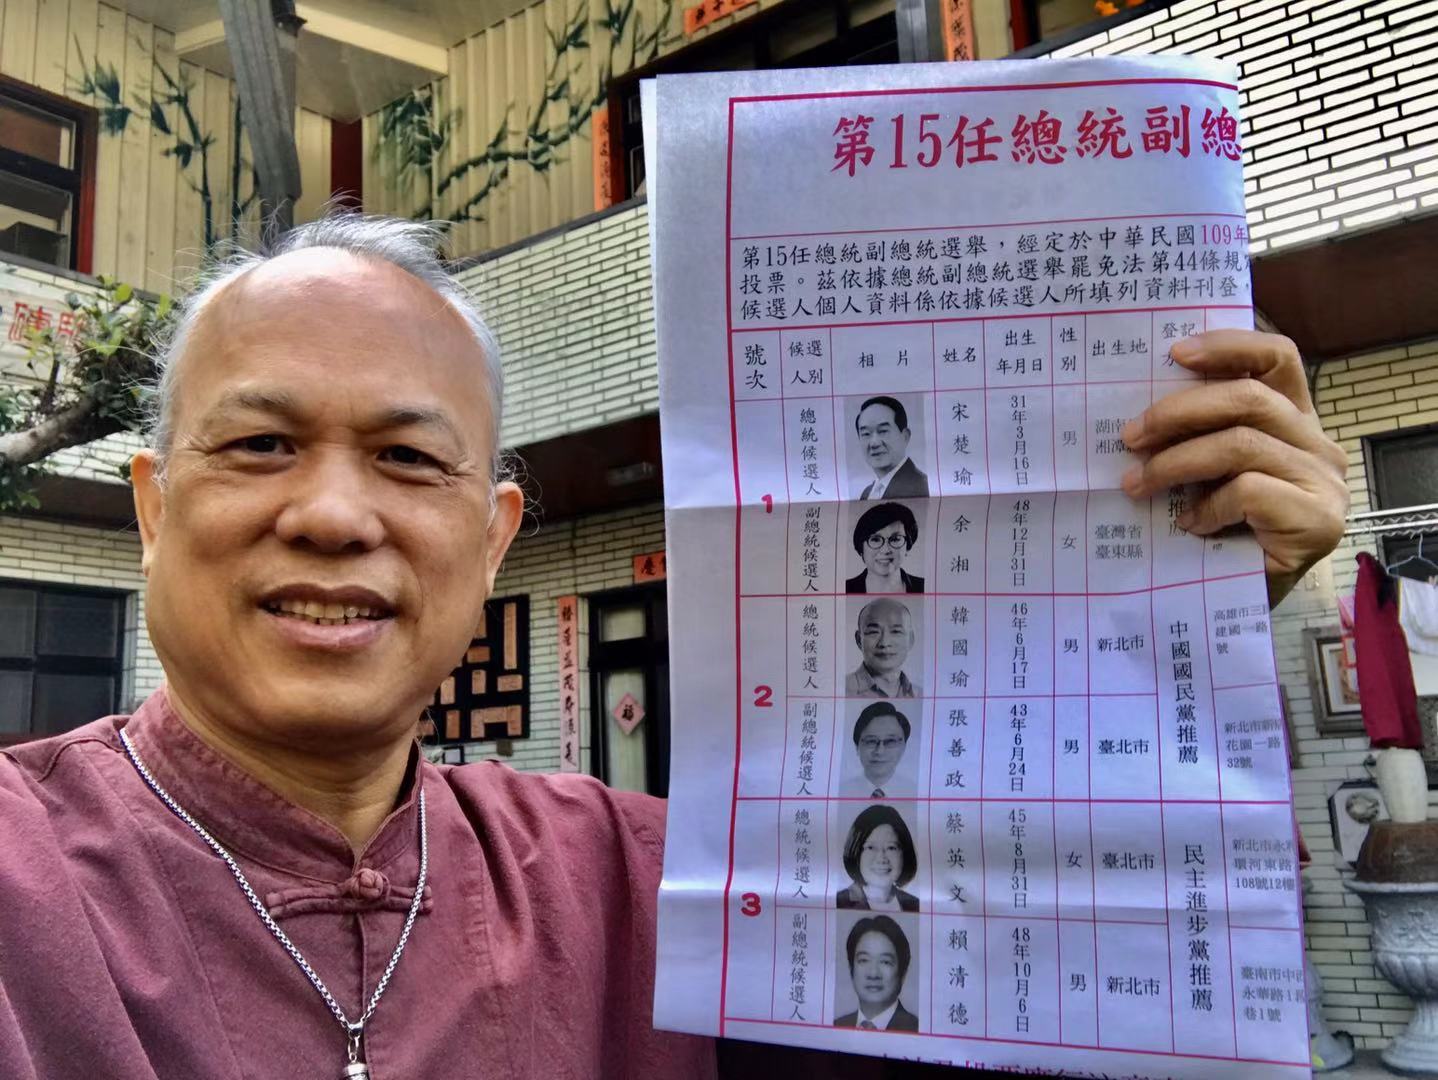 第15任總統副總
第15任總統副總統選舉，經定於中華民國109年
投票。茲依據總統副總統選舉罷免法第44條規定
候選人個人資料係依據候選人所填列資料刊登，
號次 候選人別 相片 姓名 出生年月日 性別 出生地 登記
1 總統候選人 宋楚瑜 31年3月16日 男 湖南 湘潭
副總統候選人 余湘 48年12月31日 女 臺灣省臺東縣 推薦
2 總統候選人 韓國瑜 46年6月17日 男 新北市 中國國民黨推薦 高雄市三 建國一路 號
副總統候選人 張善政 43年6月24日 男 臺北市 新北市新 花園一路 32號
3 總統候選人 蔡英文 45年8月31日 女 臺北市 民主進步黨推薦 新北市永 環河東路 108號12樓
副總統候選人 賴清德 48年10月6日 男 新北市 臺南市中 永華路1段 巷1號
福
慶